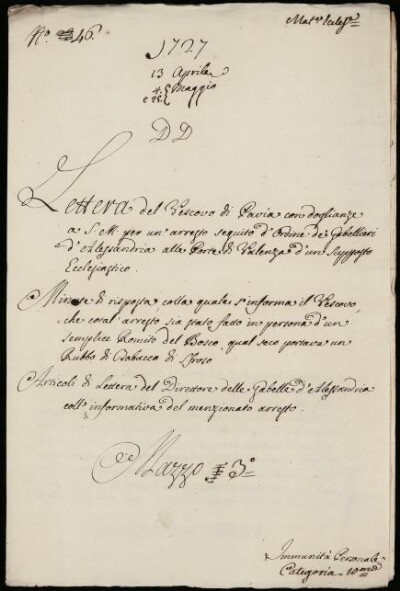 Mat.e Eccles.e
N.o 46.
1727
13 Aprile
4. Maggio
e 25.
DD
Lettera del Vescovo di Pavia con doglianze
a S. M. per un arresto seguito d'Ordine de' Gabellieri
d'Alessandria alle Porte di Valenza d'un Supposto
Ecclesiastico.
Minute di risposta, colla quale s'informa il Vescovo,
che cotal' arresto sia stato fatto in persona d'un
semplice Romito del Bosco, qual seco portava un
Rubbo di Tabacco di Sfroso
Articoli di Lettera del Direttore delle Gabelle d'Alessandria
coll' informativa del menzionato arresto.
Mazzo 3.o
Immunità Personale
Categoria 10.ma